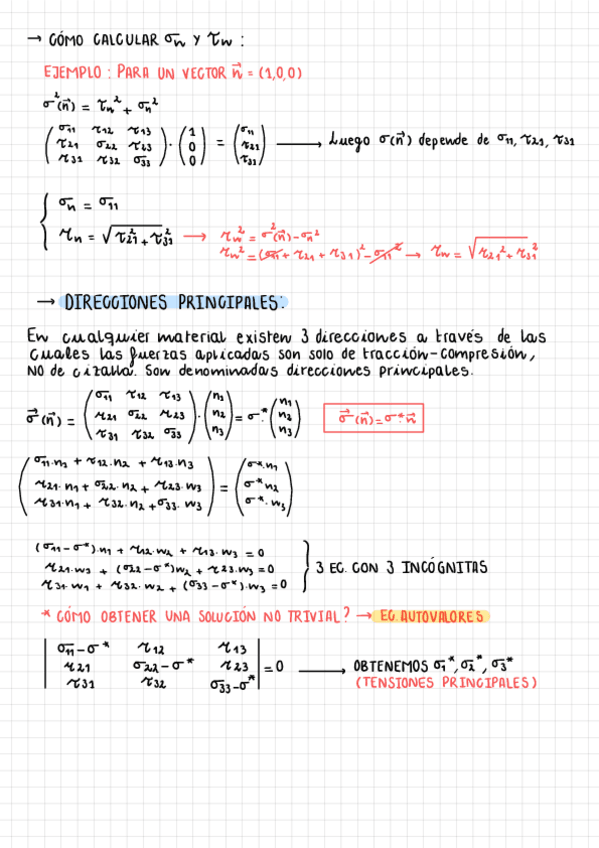 → CÓMO CALCULAR σn Y τn :
EJEMPLO : PARA UN VECTOR n⃗ = (1,0,0)
σ²(n⃗) = τn² + σn²
(σ11 τ12 τ13 / τ21 σ22 τ23 / τ31 τ32 σ33) · (1 / 0 / 0) = (σ11 / τ21 / τ31) → Luego σ(n⃗) depende de σ11, τ21, τ31
σn = σ11
τn = √(τ21² + τ31²) → τn² = σ²(n⃗) - σn²
τn² = (σ11 + τ21 + τ31)² - σ11² → τn = √(τ21² + τ31²)
→ DIRECCIONES PRINCIPALES:
En cualquier material existen 3 direcciones a través de las
cuales las fuerzas aplicadas son solo de tracción-compresión,
NO de cizalla. Son denominadas direcciones principales.
σ⃗(n⃗) = (σ11 τ12 τ13 / τ21 σ22 τ23 / τ31 τ32 σ33) · (n1 / n2 / n3) = σ* · (n1 / n2 / n3) σ⃗(n⃗) = σ* · n⃗
(σ11·n1 + τ12·n2 + τ13·n3 / τ21·n1 + σ22·n2 + τ23·n3 / τ31·n1 + τ32·n2 + σ33·n3) = (σ*·n1 / σ*·n2 / σ*·n3)
(σ11-σ*)·n1 + τ12·n2 + τ13·n3 = 0
τ21·n1 + (σ22-σ*)n2 + τ23·n3 = 0
τ31·n1 + τ32·n2 + (σ33-σ*)·n3 = 0
3 EC. CON 3 INCÓGNITAS
* CÓMO OBTENER UNA SOLUCIÓN NO TRIVIAL? → EC. AUTOVALORES
|σ11-σ* τ12 τ13 / τ21 σ22-σ* τ23 / τ31 τ32 σ33-σ*| = 0 → OBTENEMOS σ1*, σ2*, σ3*
(TENSIONES PRINCIPALES)